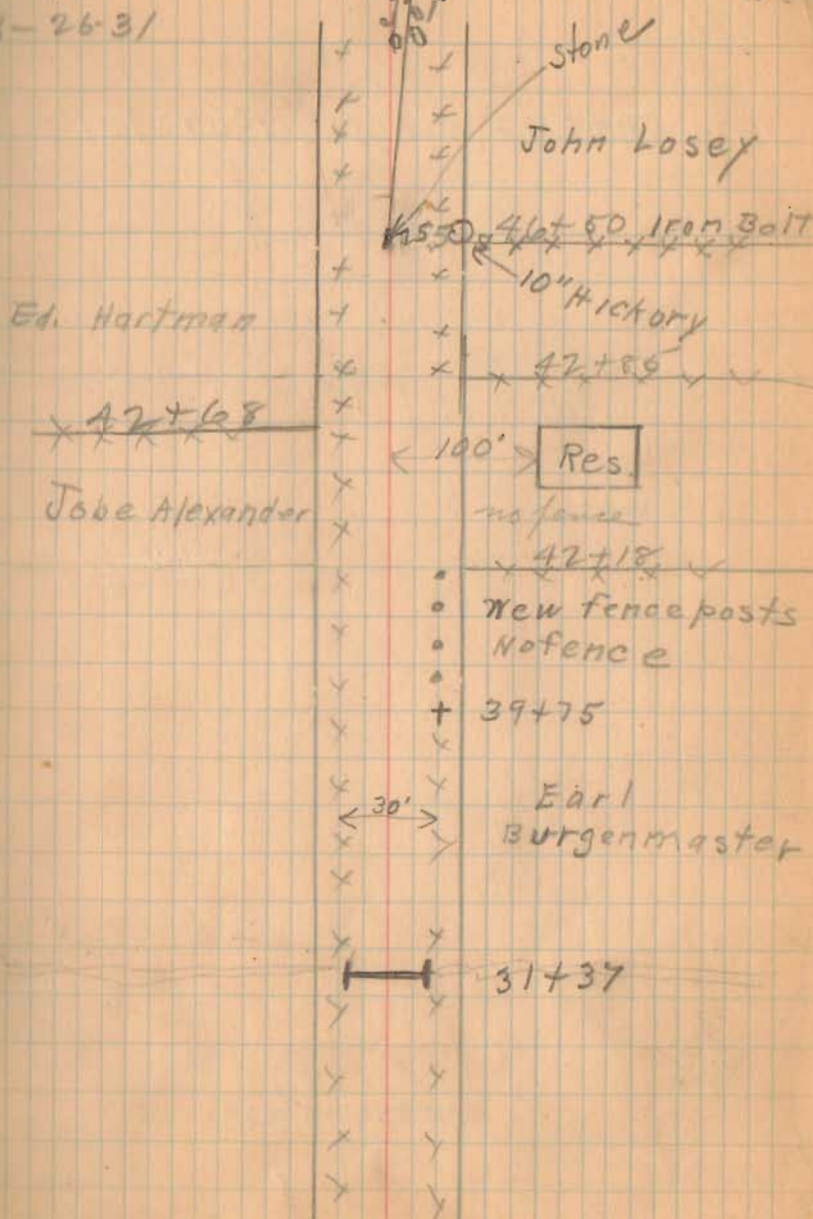 - 26-31
stone
John Losey
46+50 Iron Bolt
10" Hickory
Ed. Hartman
42+86
42+68
100'
Res.
Jobe Alexander
no fence
42+18
New fence posts
No fence
39+75
30'
Earl
Burgenmaster
31+37